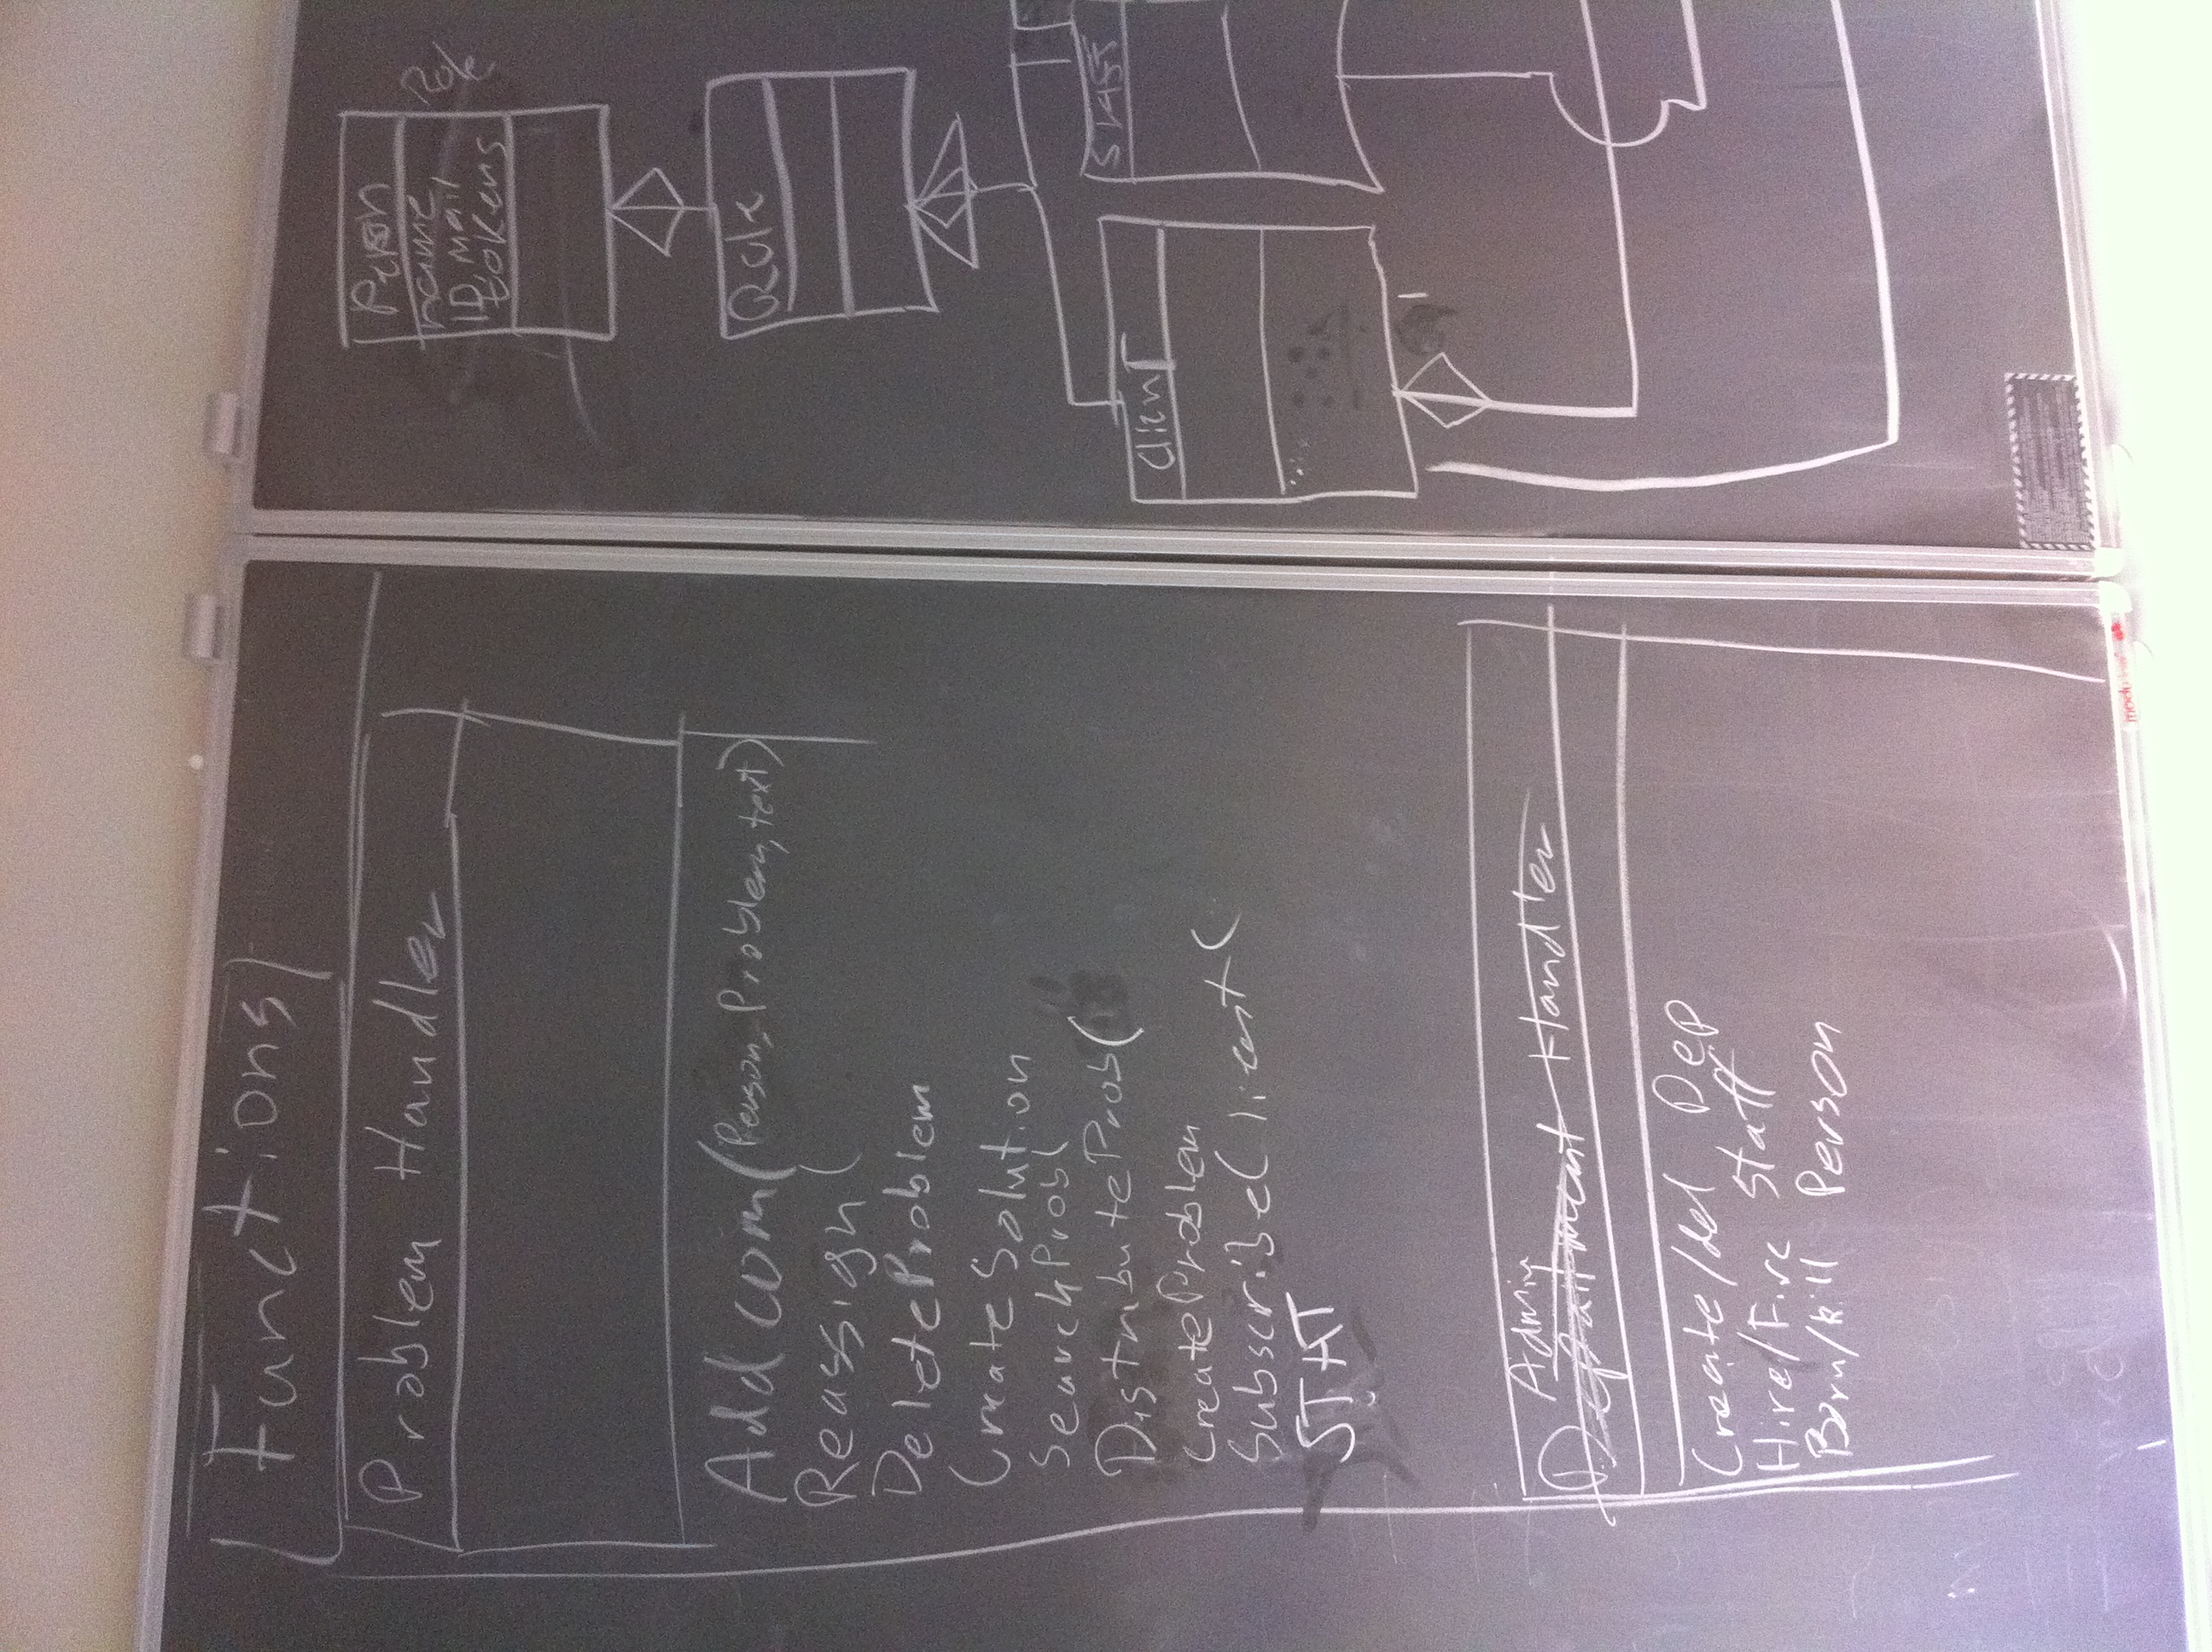 Functions
Problem Handler
Add com(Person, Problem, text)
Reassign(
DeleteProblem
CreateSolution
SearchProbl
DistributeProb(
CreateProblem
Subscribe Client(
STAT
Admin
Department Handler
Create/del Dep
Hire/Fire Staff
Born/kill Person
Person
name,
ID, mail
tokens
Role
Role
Client
Staff